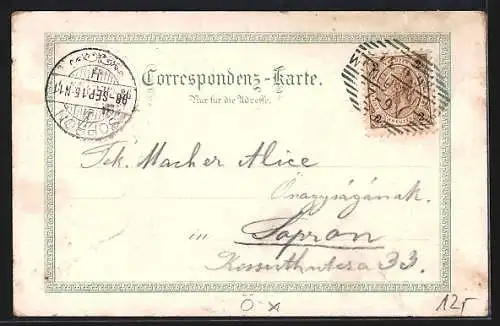 Correspondenz-Karte.
Nur für die Adresse.
SOPRON
Tek. Macher Alice
Őnagyságának.
in Sopron
Kossuthutcza 33.
Ö x
12,-